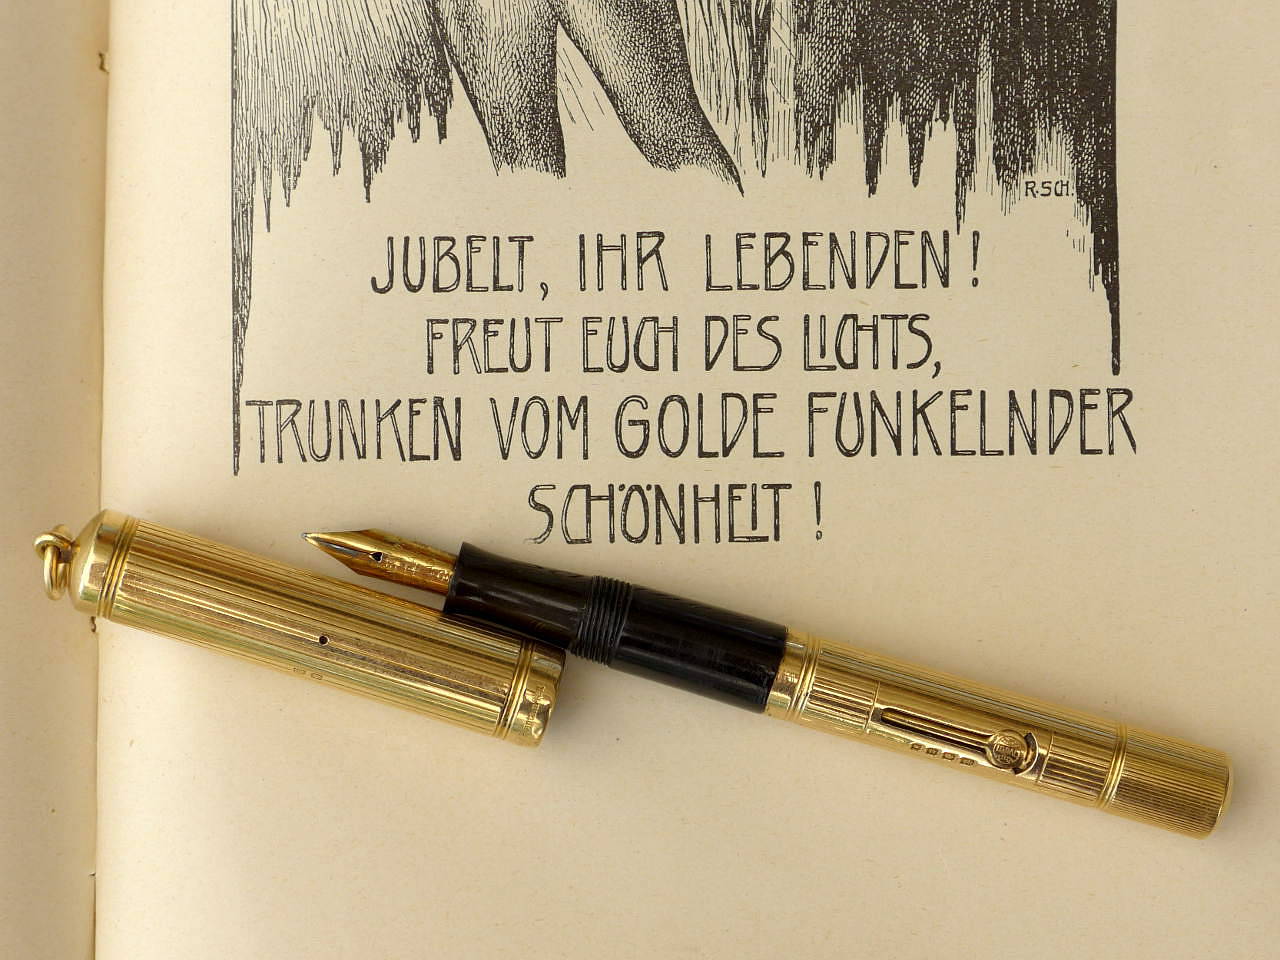 R. SCH.
JUBELT, IHR LEBENDEN!
FREUT EUCH DES LICHTS,
TRUNKEN VOM GOLDE FUNKELNDER
SCHÖNHEIT!